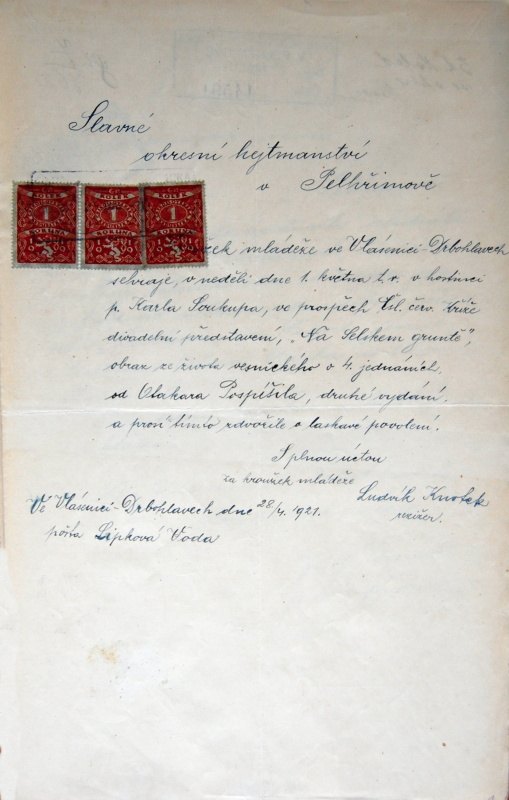 Slavné
okresní hejtmanství
v Pelhřimově
KOLEK KOLEK KOLEK
1 1 1
KORUNA KORUNA KORUNA
žek mládeže ve Vlásenici-Drbohlavech
sehraje, v neděli dne 1. května t.r. v hostinci
p. Karla Soukupa, ve prospěch Čsl. červ. Kříže
divadelní představení, "Na Selském gruntě",
obraz ze života vesnického o 4. jednáních,
od Otakara Pospíšila, druhé vydání.
a prosí tímto zdvořile o laskavé povolení.
S plnou úctou
za kroužek mládeže
Ludvík Knotek
režiser.
Ve Vlásenici-Drbohlavech dne 28/4. 1921.
pošta Lipková Voda